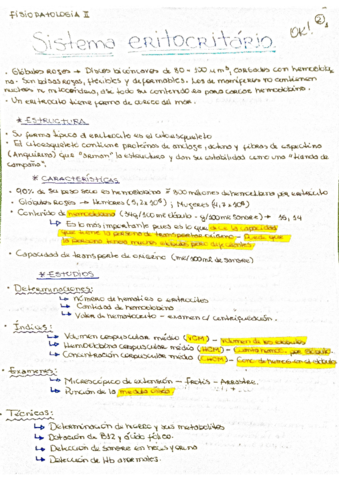 FISIOPATOLOGIA II
OK!
Sistema eritocritário
• Glóbulos rojos → Discos bicóncavos de 80-100 um³, cargados con hemoglobi
na. Son bolsas rojas, flexibles y deformables. Los de mamíferos no contienen
nucleos ni mitocondrias, de todo su contenido es para cargar hemoglobina.
• Un eritrocito tiene forma de
* ESTRUCTURA
• Su forma típica el eritrocito es el citoesqueleto
• El citoesqueleto contiene proteínas de anclaje, actina y fibras de espectrina
(Anquirina) que "arman" la estructura y dan su estabilidad como una "tienda de
campaña".
* CARACTERÍSTICAS
• 90% de su peso seco es hemoglobina 300 millones de hemoglobina por eritrocito
• Glóbulos rojos → Hombres (5,2x10⁶) ; Mujeres (4,7x10⁶)
• Contenido de hemoglobina (34g/100 ml de
↳ Es lo más importante pues es lo que dice la capacidad
que tiene la persona de transportar oxígeno
la persona tenga muchos glóbulos pero
• Capacidad de transporte de oxígeno (ml/100ml de sangre)
* ESTUDIOS
• Determinaciones:
↳ Número de hematíes o eritrocitos
↳ Cantidad de hemoglobina
↳ Valor de hematocrito - examen c/ centrifugación.
• Índices:
↳ Volumen corpuscular médio (VCM) - Volumen de los glóbulos
↳ Hemoglobina corpuscular médio (HCM) - Cant. hemog. por glóbulo
↳ Concentración corpuscular médio (CHCM) - Conc. de hemog en el glóbulo
• Exámenes:
↳ Microscópico de extensión - Frotis - Arrastre.
↳ Punción de la médula ósea.
• Técnicas:
↳ Determinación de hierro y sus metabolitos
↳ Dotación de B12 y ácido fólico.
↳ Detección de sangre en heces y orina
↳ Detección de Hb anormales.